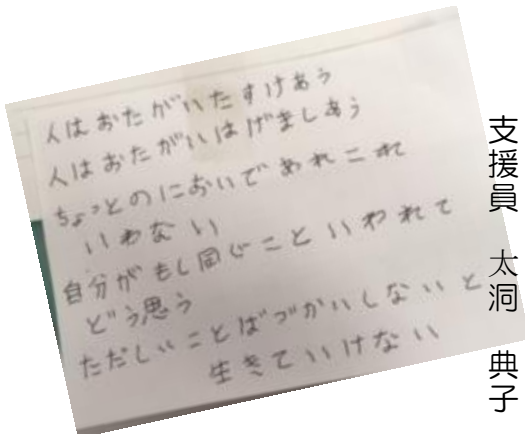 人はおたがいたすけあう
人はおたがいはげましあう
ちょっとのにおいであれこれ
いわない
自分がもし同じこといわれて
どう思う
ただしいことばづかいしないと
生きていけない
支援員 太洞 典子